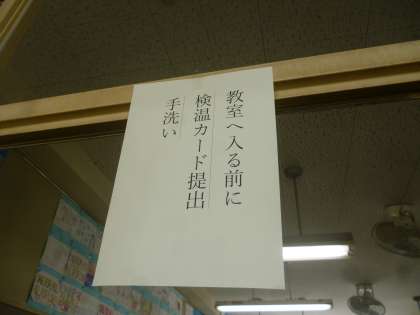 教室へ入る前に
検温カード提出
手洗い